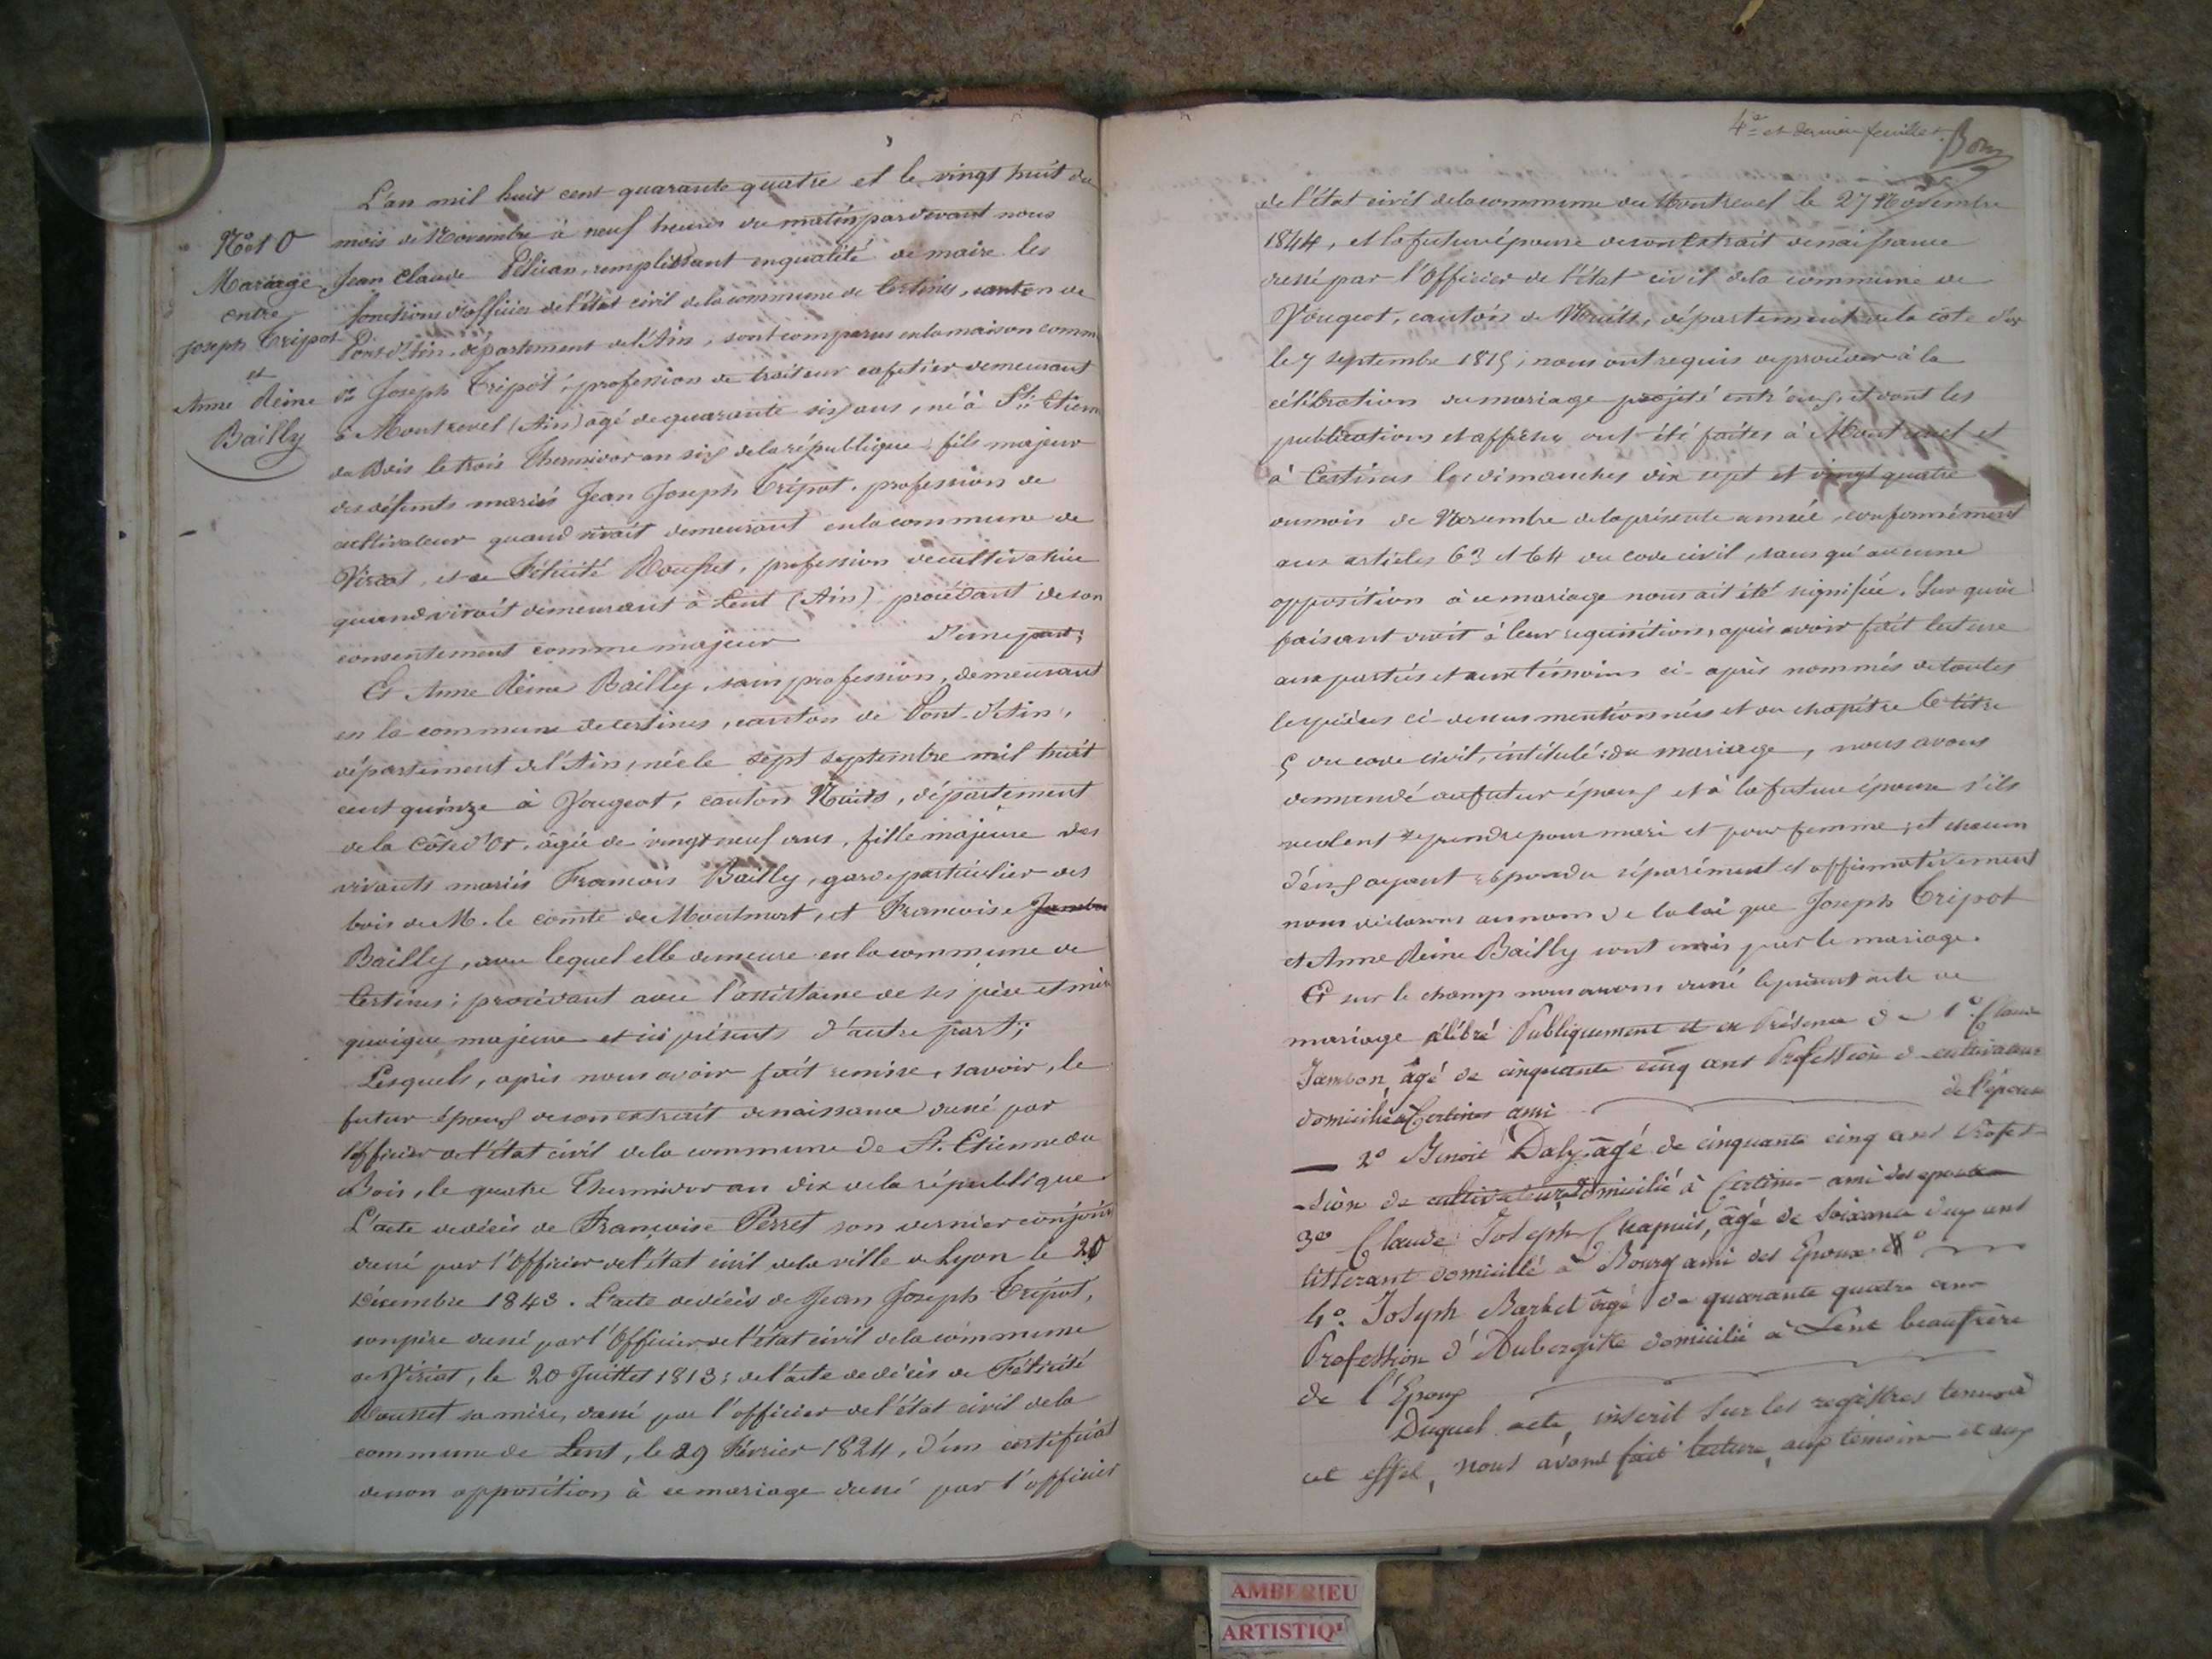 L'an mil huit cent quarante quatre et le vingt huit du
mois de Novembre à neuf heures du matin pardevant nous
Jean Claude remplissant en qualité de maire les
fonctions d'officier de l'état civil de la commune de Certines, canton de
Pont d'Ain, département de l'Ain, sont comparus en la maison comm
Joseph Tripot, profession de traiteur cafetier demeurant
à Montrevel (Ain) âgé de quarante six ans, né à St. Etienn
du Bois le trois Thermidor an six de la république fils majeur
des défunts mariés Jean Joseph Tripot, profession de
cultivateur quand vivait demeurant en la commune de
Viriat, et de Félicité Rousset, profession de cultivatrice
quand vivait demeurant à Lent (Ain) procédant de son
consentement comme majeur d'une part;
Et Anne Reine Bailly, sans profession, demeurant
en la commune de Certines, canton de Pont-d'Ain,
département de l'Ain, née le sept septembre mil huit
cent quinze à Vougeot, canton Nuits, département
de la Côte d'Or, âgée de vingt neuf ans, fille majeure des
vivants mariés Francois Bailly, garde particulier des
bois de M. le comte de Montmort, et Francoise Jambon
Bailly, avec lequel elle demeure en la commune de
Certines; procédant avec l'assistance de ses père et mère
quoique majeure et ici présents d'autre part;
Lesquels, après nous avoir fait remise, savoir, le
futur époux de son extrait de naissance dressé par
l'officier de l'état civil de la commune de St. Etienne du
Bois, le quatre Thermidor an dix de la république
L'acte de décès de Françoise Perret son dernier conjoint
dressé par l'Officier de l'état civil de la ville de Lyon le 20
Décembre 1843. L'acte de décès de Jean Joseph Tripot,
son père dressé par l'Officier de l'état civil de la commune
de Viriat, le 20 Juillet 1813; de l'acte de décès de Félicité
Rousset sa mère, dressé par l'officier de l'état civil de la
commune de Lent, le 29 Février 1824, d'un certificat
de non opposition à ce mariage dressé par l'officier
N° 10
Mariage
entre
Joseph Tripot
et
Anne Reine
Bailly
4e et dernier feuillet.
de l'état civil de la commune de Montrevel le 27 Novembre
1844, et la future épouse de son Extrait de naissance
dressé par l'Officier de l'état civil de la commune de
Vougeot, canton de Nuits, département de la côte d'or
le 7 septembre 1815; nous ont requis de procéder à la
célébration du mariage projeté entr'eux, et dont les
publications et affiches ont été faites à Montrevel et
à Certines les dimanches dix sept et vingt quatre
du mois de Novembre de la présente année, conformément
aux articles 63 et 64 du code civil, sans qu'aucune
opposition à ce mariage nous ait été signifiée. Sur quoi
faisant droit à leur réquisition, après avoir fait lecture
aux parties et aux témoins ci-après nommés de toutes
les pièces ci-dessus mentionnées et du chapitre 6 titre
5 du code civil, intitulé: du mariage, nous avons
demandé au futur époux et à la future épouse s'ils
veulent se prendre pour mari et pour femme; et chacun
d'eux ayant répondu séparément et affirmativement
nous déclarons au nom de la loi que Joseph Tripot
et Anne Reine Bailly sont unis par le mariage.
Et sur le champ nous avons dressé le présent acte de
mariage célébré Publiquement et en Présence de 1° Claude
Jambon, âgé de cinquante cinq ans Profession de cultivateur
domicilié à Certines ami de l'épouse
2° Benoit Daly, âgé de cinquante cinq ans Profes-
-sion de cultivateur, domicilié à Certines ami des epoux
3e° Claude Joseph Chapuis, âgé de soixante deux ans
domicillé à Bourg ami des Epoux
4°. Joseph Barbet âgé de quarante quatre ans
Profession d'Aubergiste domicilié à Lent beaufrère
de l'Epoux
Duquel acte, inscrit sur les registres tenus à
cet effet, nous avons fait lecture, aux témoins et aux
AMBERIEU
ARTISTIQ'